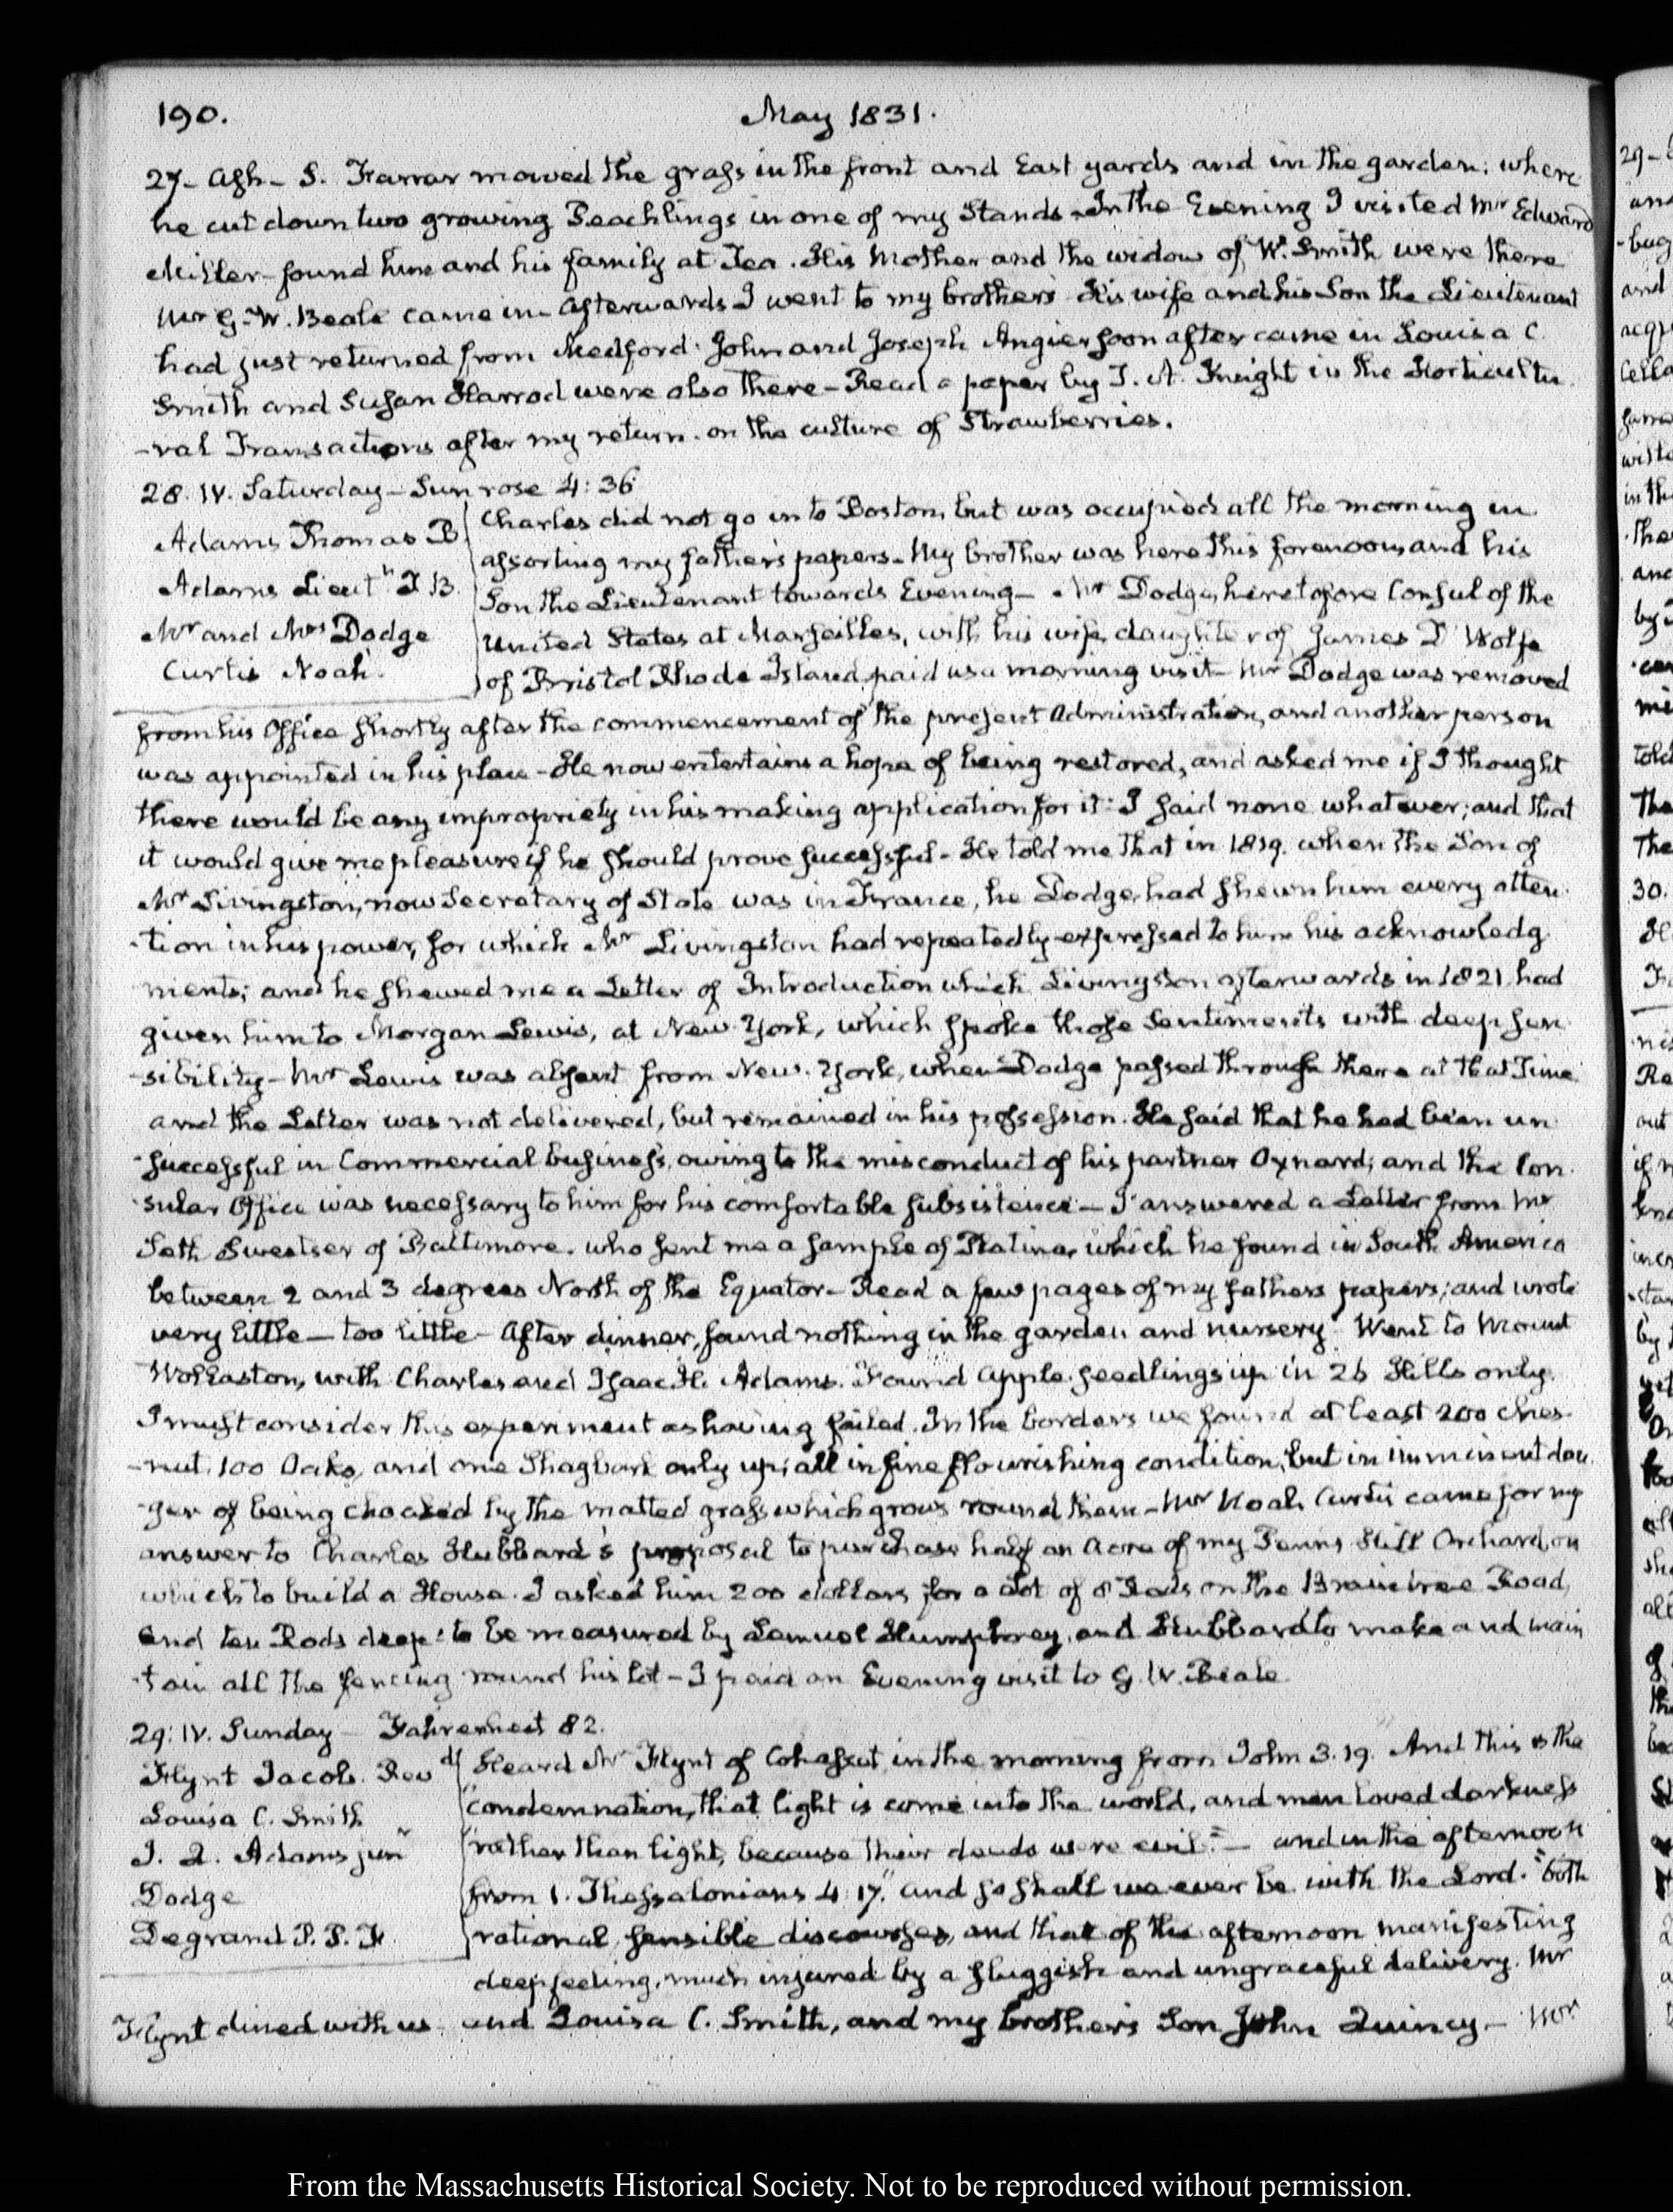 190.
May 1831.
27- Ash- S. Farrar mowed the grass in the front and East yards and in the garden; where
he cut down two growing Peachlings in one of my Stands. In the Evening I visited Mr Edward
Miller- found him and his family at Tea. His Mother and the widow of W. Smith were there
Mr G. W. Beale came in- Afterwards I went to my brother's His wife and his Son the Lieutenant
had just returned from Medford. John and Joseph Angier soon after came in Louisa C.
Smith and Susan Harrod were also there- Read a paper by T. A. Knight in the Horticultu
-ral Transactions after my return. on the culture of Strawberries.
28. IV. Saturday- Sun rose 4:36
Adams Thomas B.
Adams Lieutt T B.
Mr and Mrs Dodge
Curtis Noah.
Charles did not go into Boston, but was occupied all the morning in
assorting my father's papers- My brother was here this forenoon, and his
Son the Lieutenant towards Evening- Mr Dodge, heretofore Consul of the
United States at Marseilles, with his wife, daughter of James D'Wolfe
of Bristol Rhode Island, paid us a morning visit- Mr Dodge was removed
from his Office shortly after the commencement of the present Administration, and another person
was appointed in his place- He now entertains a hope of being restored, and asked me if I thought
there would be any impropriety in his making application for it: I said none whatever; and that
it would give me pleasure if he should prove successful- He told me that in 1819. when the Son of
Mr Livingston, now Secretary of State was in France, he Dodge, had shewn him every atten
-tion in his power, for which Mr Livingston had repeatedly expressed to him his acknowledg
ments; and he shewed me a Letter of Introduction which Livingston afterwards in 1821. had
given him to Morgan Lewis, at New-York, which spoke those Sentiments with deep sen
-sibility- Mr Lewis was absent from New-York, when Dodge passed through there at that Time
and the Letter was not delivered, but remained in his possession. He said that he had been un
-successful in Commercial business, owing to the misconduct of his partner Oxnard; and the Con
-sular Office was necessary to him for his comfortable subsistence- I answered a Letter from Mr
Seth Sweetser of Baltimore, who sent me a sample of Platina, which he found in South America
between 2 and 3 degrees North of the Equator- Read a few pages of my father's papers; and wrote
very little- too little- After dinner, found nothing in the garden and nursery. Went to Mount
Wollaston, with Charles and Isaac H. Adams. Found Apple-seedlings up in 26 Hills only.
I must consider this experiment as having failed. In the borders we found at least 200 Ches
-nut, 100 Oaks, and one Shagbark only up; all in fine flourishing condition, but in imminent dan
-ger of being choaked by the matted grass which grows round them- Mr Noah Curtis came for my
answer to Charles Hubbard's proposal to purchase half an Acre of my Penns Hill Orchard, on
which to build a House. I asked him 200 dollars for a Lot of 8 Rods on the Braintree Road,
and ten Rods deep: to be measured by Lemuel Humphrey, and Hubbard to make and main
-tain all the fencing round his lot- I paid an Evening visit to G. W. Beale.
29. IV. Sunday- Fahrenheit 82.
Flynt Jacob. Revd
Louisa C. Smith
J. Q. Adams junr
Dodge
Degrand P. P. F.
Heard Mr Flynt of Cohasset, in the morning from John 3.19. And this is the
"condemnation, that light is come into the world, and men loved darkness
"rather than light, because their deeds were evil."- and in the afternoon
from 1. Thessalonians 4.17. "and so shall we ever be with the Lord." both
rational, sensible discourses, and that of the afternoon manifesting
deep feeling, much injured by a sluggish and ungraceful delivery. Mr
Flynt dined with us. and Louisa C. Smith, and my brother's Son John Quincy- Mr
From the Massachusetts Historical Society. Not to be reproduced without permission.